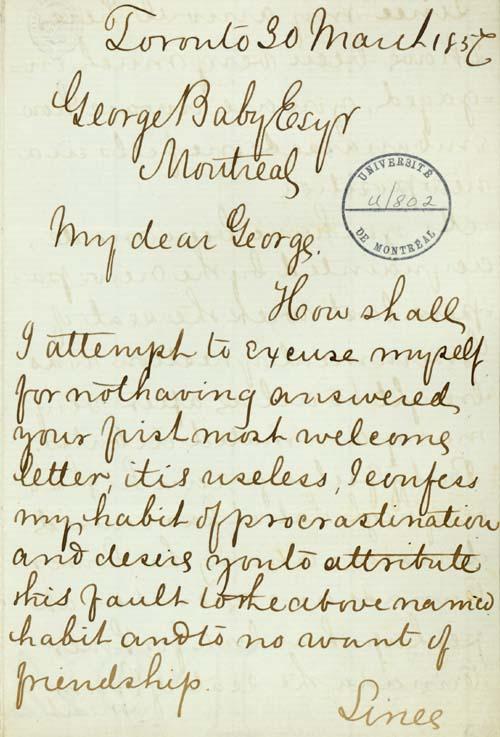 Toronto 30 March 1857
George Baby Esqr
Montreal
UNIVERSITÉ
U/802
DE MONTRÉAL
My dear George.
How shall
I attempt to excuse myself
for not having answered
your first most welcome
letter, it is useless, I confess
my habit of procrastination
and desire you to attribute
this fault to the above named
habit and to no want of
friendship.
Since